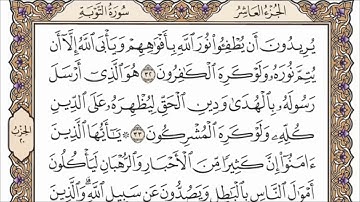 الجزء العاشر سورة التوبة
يُرِيدُونَ أَن يُطْفِـُٔوا۟ نُورَ ٱللَّهِ بِأَفْوَٰهِهِمْ وَيَأْبَى ٱللَّهُ إِلَّآ أَن
يُتِمَّ نُورَهُۥ وَلَوْ كَرِهَ ٱلْكَٰفِرُونَ ٣٢ هُوَ ٱلَّذِىٓ أَرْسَلَ
رَسُولَهُۥ بِٱلْهُدَىٰ وَدِينِ ٱلْحَقِّ لِيُظْهِرَهُۥ عَلَى ٱلدِّينِ
كُلِّهِۦ وَلَوْ كَرِهَ ٱلْمُشْرِكُونَ ٣٣ يَٰٓأَيُّهَا ٱلَّذِينَ
ءَامَنُوٓا۟ إِنَّ كَثِيرًا مِّنَ ٱلْأَحْبَارِ وَٱلرُّهْبَانِ لَيَأْكُلُونَ
أَمْوَٰلَ ٱلنَّاسِ بِٱلْبَٰطِلِ وَيَصُدُّونَ عَن سَبِيلِ ٱللَّهِ ۗ وَٱلَّذِينَ
الحزب
٢٠